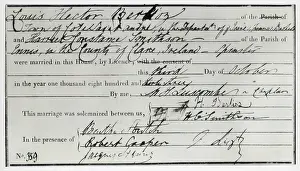 Louis Hector Berlioz of the Parish of
Town of
and Harriet Constance Smithson of the Parish of
Ennis, in the County of Clare Ireland - Spinster
were married in this House, by Licence, with the consent of
this third Day of October
in the year one thousand eight hundred and thirty three
By me M. H. Luscombe
This marriage was solemnized between us, H. Berlioz
H. C. Smithson
In the presence of Bertha Stritch
Robert Cooper F. Liszt
Jacques Henry
No. 89